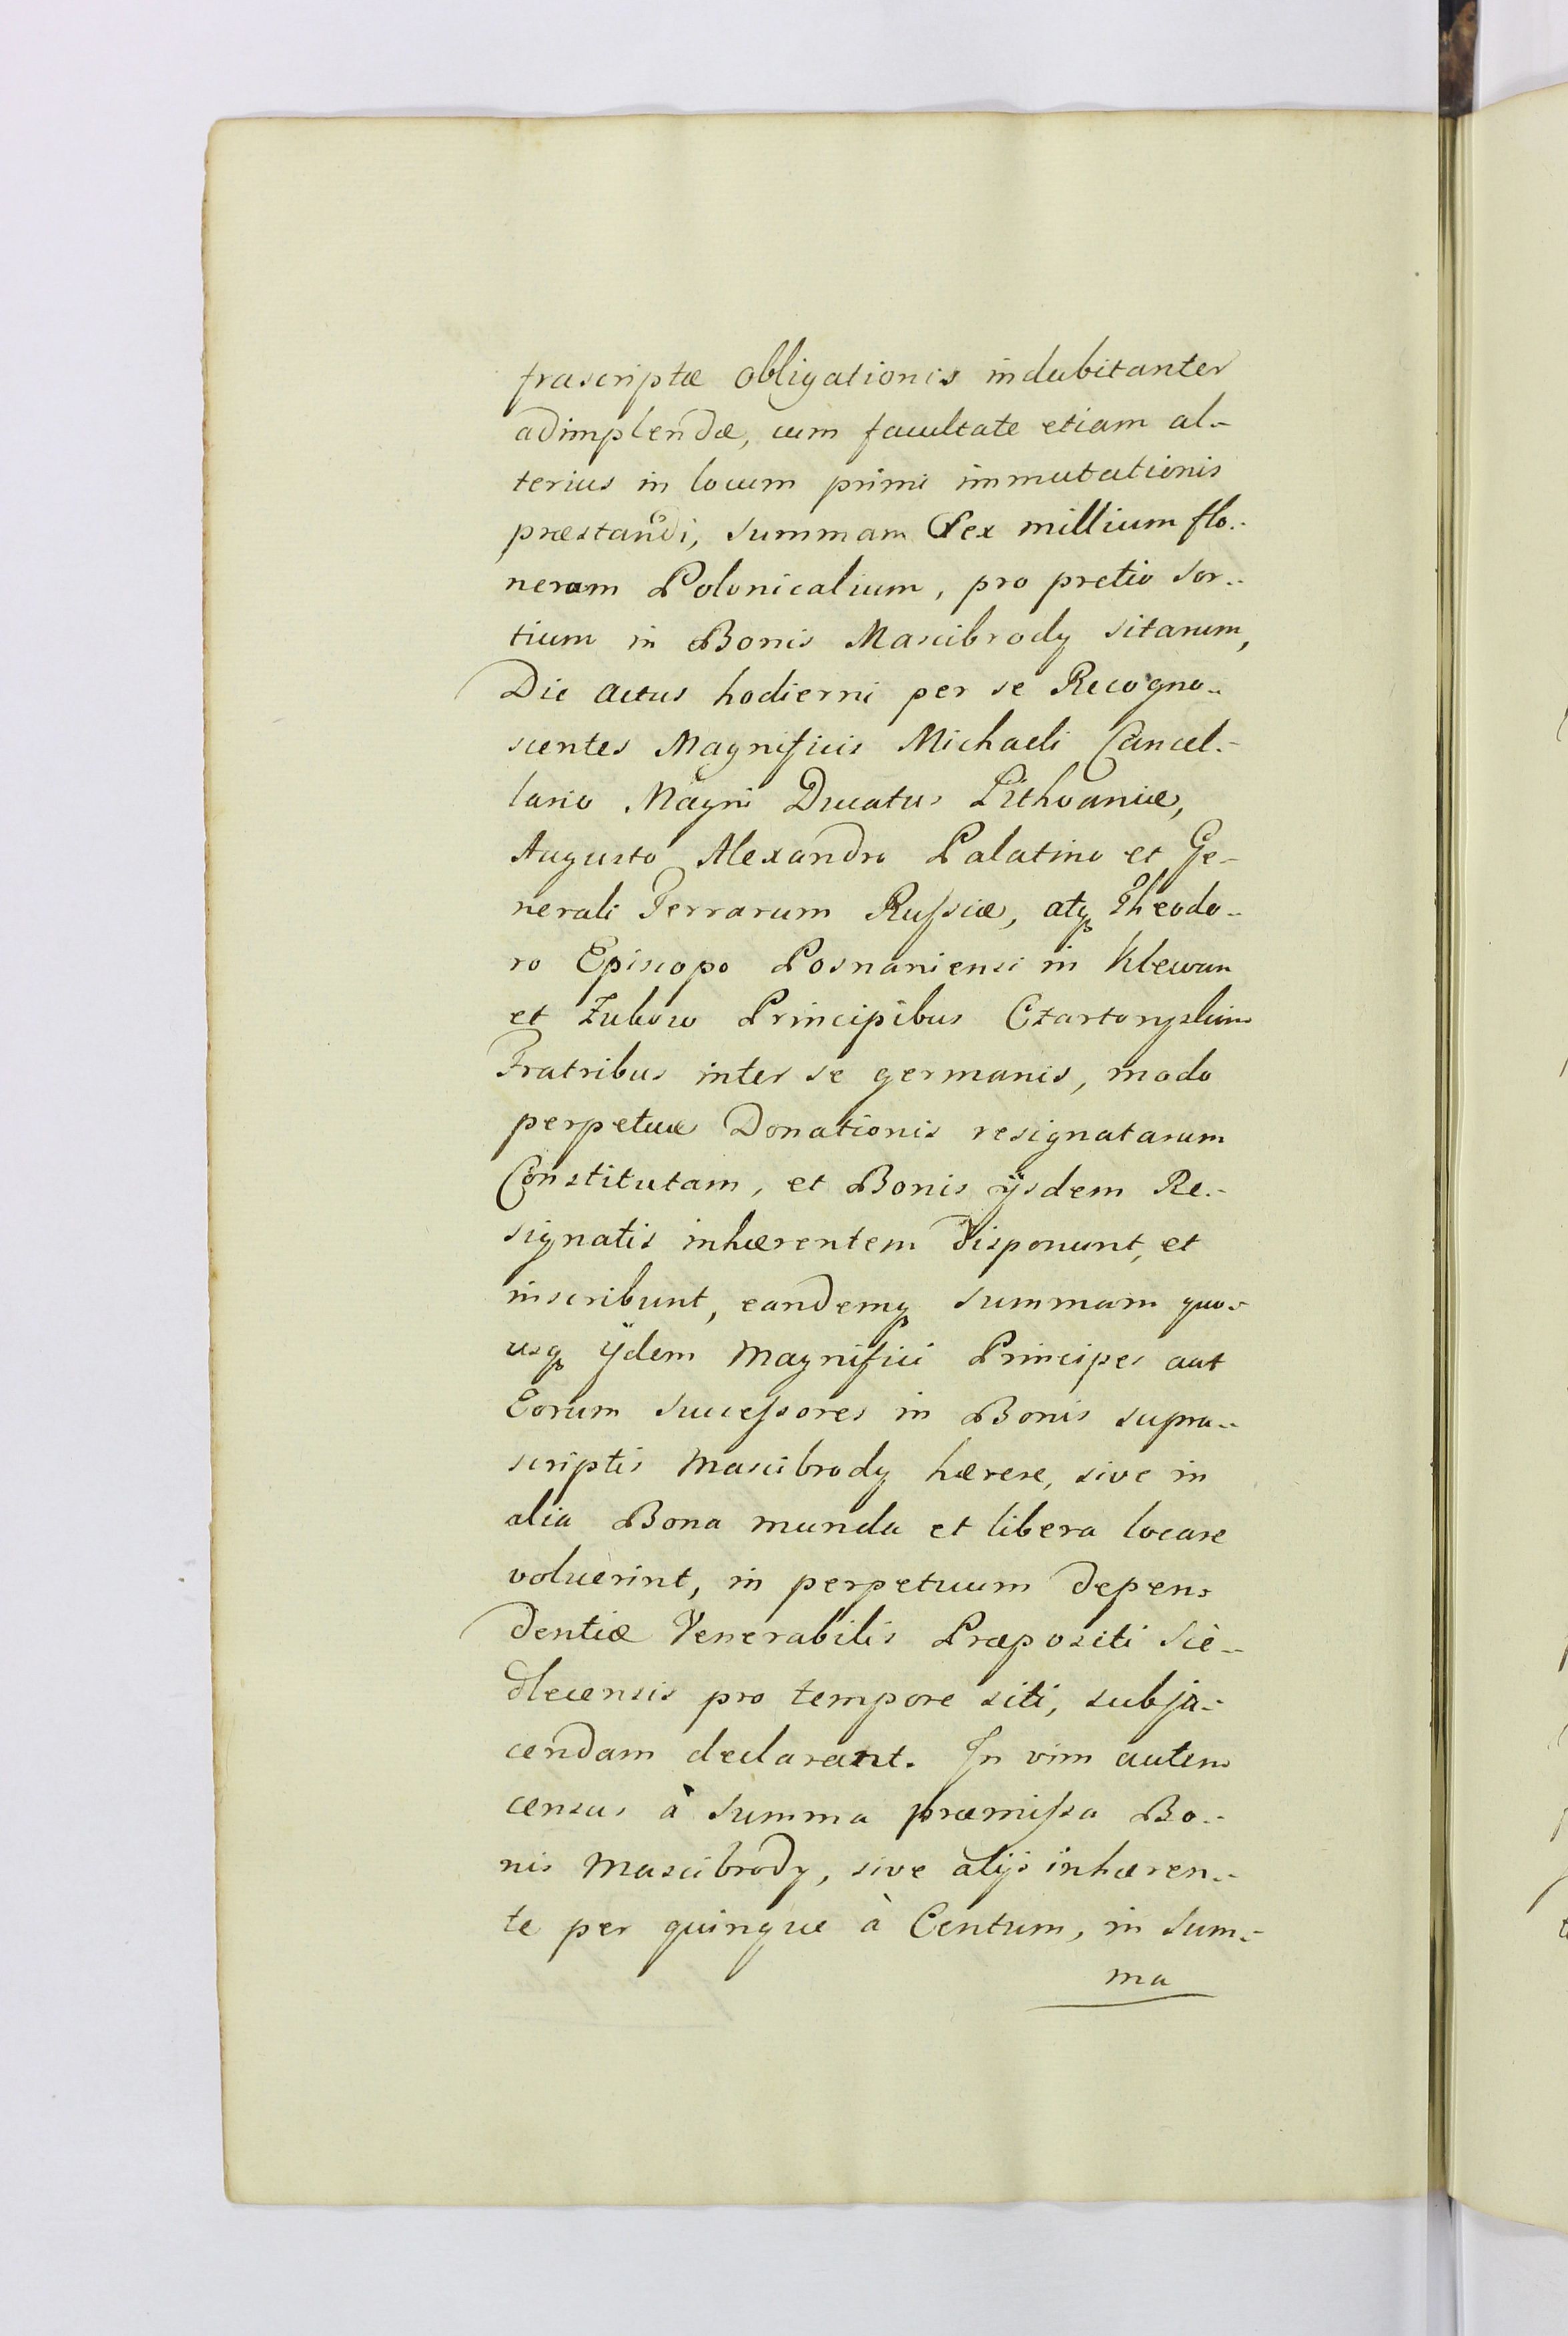 frascriptæ obligationis indubitanter
adimplendæ, cum facultate etiam al-
terius in locum primi immutationis
præstandi, summam Sex millium flo-
nerom Polonicalium, pro pretio sor-
tium in Bonis Mascibrody sitarum,
Die actus hodierni per se Recogno-
scentes Magnificis Michaeli Cancel-
lario Magni Ducatus Lithvaniæ,
Augusto Alexandro Palatino et Ge-
nerali Terrarum Russiæ, atq Theodo-
ro Episcopo Posnaniensi in Klewan
et Zukow Principibus Czartoryskim
Fratribus inter se germanis, modo
perpetuæ Donationis resignatarum
Constitutam, et Bonis ijsdem Re-
signatis inhærentem disponunt, et
inscribunt, eandemq summam quo-
usq ijdem Magnifici Principes aut
Eorum Successores in Bonis supra-
scriptis Mascibrody hærere, sive in
alia Bona munda et libera locare
voluerint, in perpetuum depen-
dentiæ Venerabilis Præpositi Sie-
dlecensis pro tempore siti, subja-
cendam declarant. In vim autem
census à Summa præmissa Bo-
nis Mascibrody, sive alijs inhæren-
te per quinque à Centum, in Sum-
ma